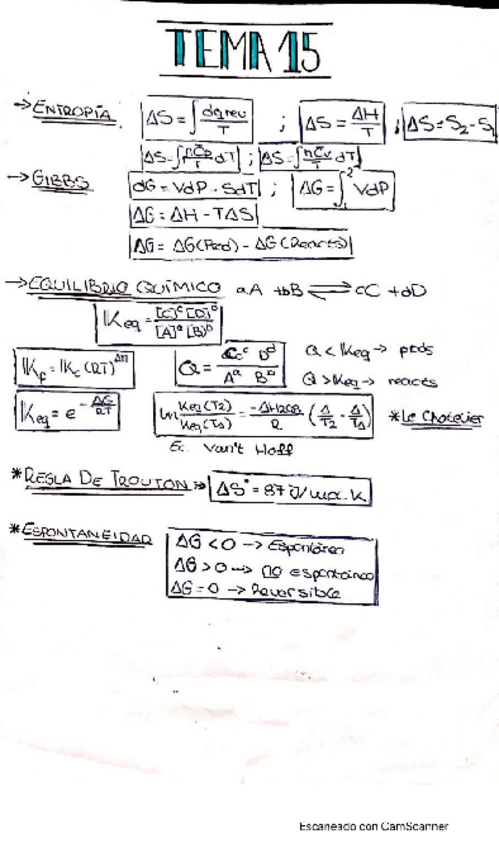 TEMA 15
→ENTROPÍA. ΔS = ∫ dqrev/T ; ΔS = ΔH/T ; ΔS = S2 - S1
ΔS = ∫ nC̄p/T dT ; ΔS = ∫ nC̄v/T dT
→GIBBS dG = VdP - SdT ; ΔG = ∫₁² VdP
ΔG = ΔH - TΔS
ΔG = ΔG(Prod) - ΔG(Reacts)
→EQUILIBRIO QUÍMICO aA + bB ⇌ cC + dD
Keq = [C]ᶜ [D]ᴰ / [A]ᵃ [B]ᵇ
Kp = Kc (RT)^Δn Q = Cᶜ Dᵈ / Aᵃ Bᵇ Q < Keq → ptds
Q > Keq → reacts
Keq = e^(-ΔG/RT) ln Keq(T2)/Keq(T1) = -ΔH/R (1/T2 - 1/T1) *Le Chatelier
Ec. Van't Hoff
*REGLA DE TROUTON ⇒ ΔS° = 87 J/mol.K
*ESPONTANEIDAD
ΔG < 0 → Espontánea
ΔG > 0 → no espontánea
ΔG = 0 → Reversible
Escaneado con CamScanner